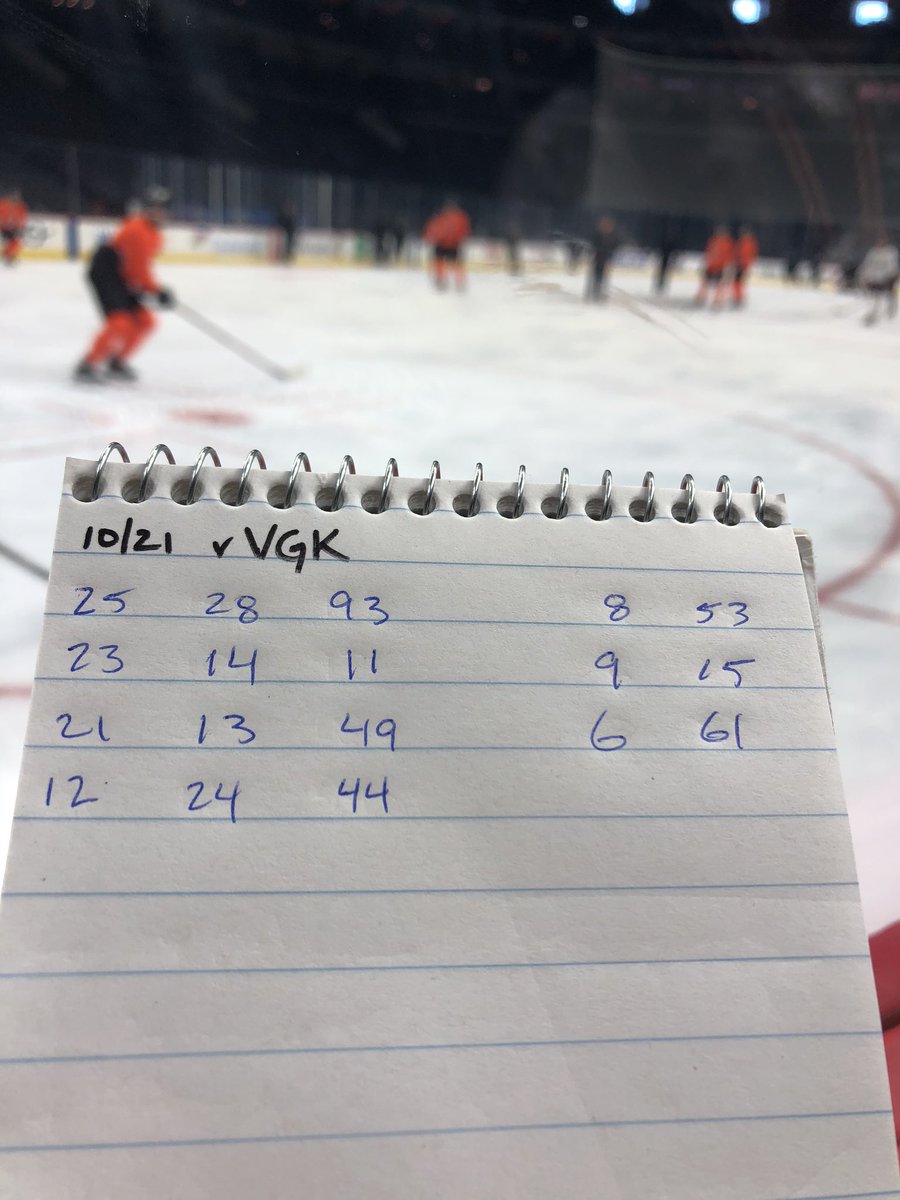 10/21 v VGK
25 28 93 8 53
23 14 11 9 15
21 13 49 6 61
12 24 44